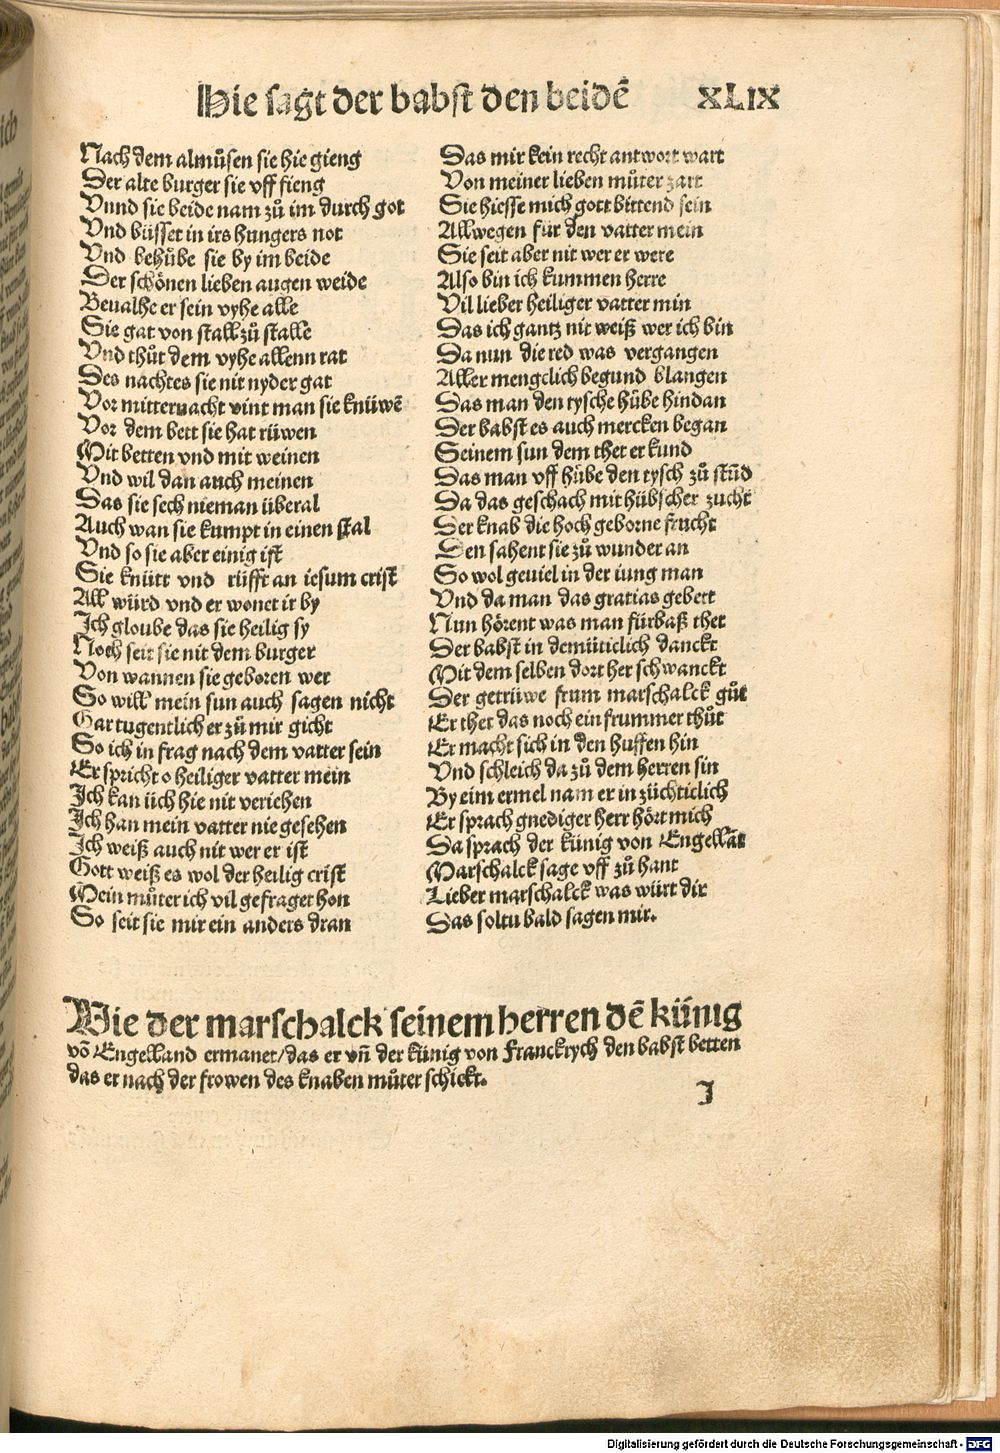 Hie sagt der babst den beidē XLIX
Nach dem almůsen sie hie gieng
Der alte burger sie vff fieng
Vnnd sie beide nam zů im durch got
Vnd büsset in irs hungers not
Vnd behůbe sie by im beide
Der schönen lieben augen weide
Beualhe er sein vyhe alle
Sie gat von stall zů stalle
Vnd thůt dem vyhe allenn rat
Des nachtes sie nit nyder gat
Vor mitternacht vint man sie knüwē
Vor dem bett sie hat rüwen
Mit betten vnd mit weinen
Vnd wil dan auch meinen
Das sie sech nieman überal
Auch wan sie kumpt in einen stal
Vnd so sie aber einig ist
Sie knütt vnd rüfft an iesum crist
All würd vnd er wonet ir by
Ich gloube das sie heilig sy
Noch seit sie nit dem burger
Von wannen sie geboren wer
So will mein sun auch sagen nicht
Gar tugentlich er zů mir gicht
So ich in frag nach dem vatter sein
Er spricht o heiliger vatter mein
Ich kan üch hie nit veriehen
Ich han mein vatter nie gesehen
Ich weiß auch nit wer er ist
Gott weiß es wol der heilig crist
Mein můter ich vil gefraget hon
So seit sie mir ein anders dran
Das mir kein recht antwort wart
Von meiner lieben můter zart
Sie hiesse mich gott bittend sein
Allwegen für den vatter mein
Sie seit aber nit wer er were
Also bin ich kummen herre
Vil lieber heiliger vatter min
Das ich gantz nit weiß wer ich bin
Da nun die red was vergangen
Aller menglich begund blangen
Das man den tysche hübe hindan
Der babst es auch mercken began
Seinem sun dem thet er kund
Das man vff hübe den tysch zů stūd
Da das geschach mit hübscher zucht
Der knab die hoch geborne frucht
Den sahent sie zů wunder an
So wol geuiel in der iung man
Vnd da man das gratias gebett
Nun hörent was man fürbaß thet
Der babst in demüticlich danckt
Mit dem selben dort her schwanckt
Der getrüwe frum marschalck gůt
Er thet das noch ein frummer thůt
Er macht sich in den huffen hin
Vnd schleich da zů dem herren sin
By eim ermel nam er in züchticlich
Er sprach gnediger herr hört mich
Da sprach der künig von Engellāt
Marschalck sage vff zů hant
Lieber marschalck was würt dir
Das soltu bald sagen mir.
Wie der marschalck seinem herren dē künig
vō Engelland ermanet/das er vn̄ der künig von Franckrych den babst betten
das er nach der frowen des knaben můter schickt.
I
Digitalisierung gefördert durch die Deutsche Forschungsgemeinschaft - DFG